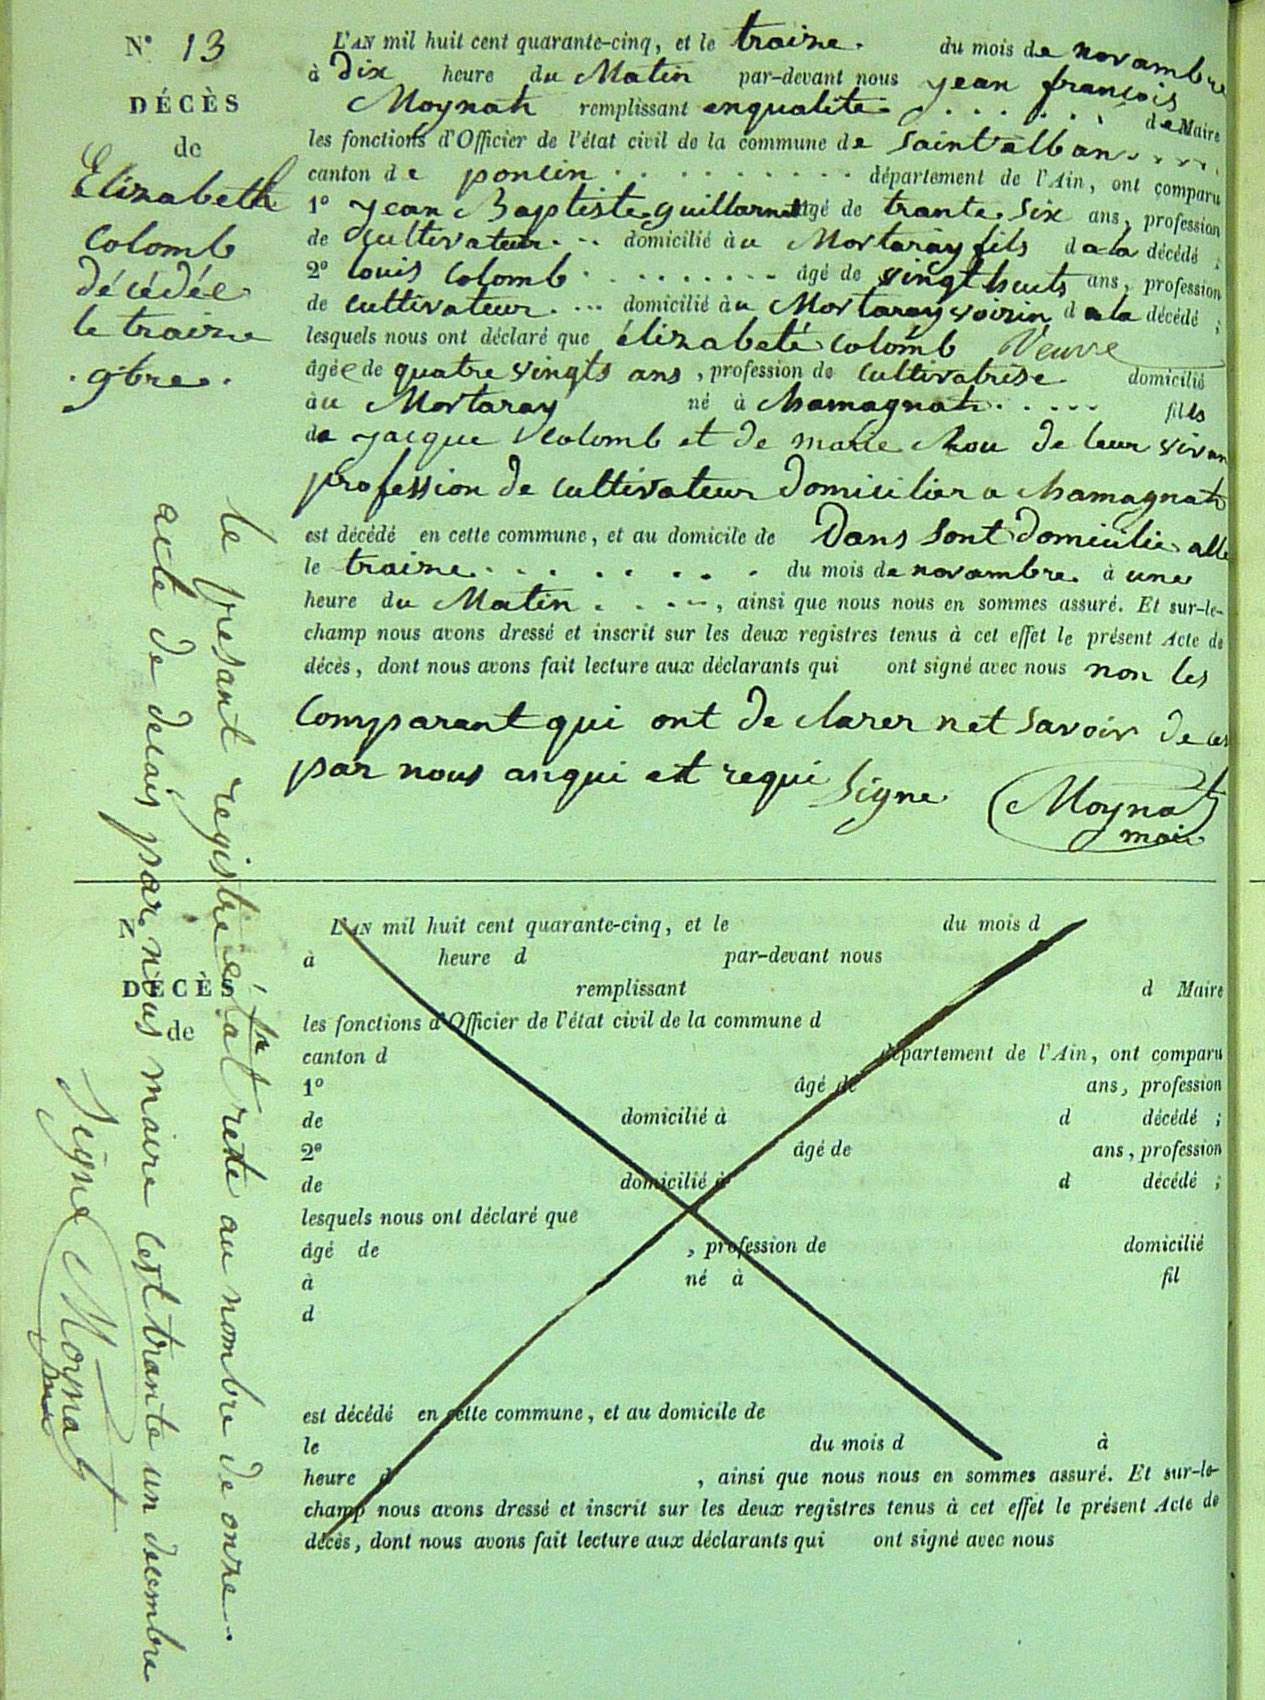 N° 13
DÉCÈS
de
Elizabeth
Colomb
décédée
le traize
9bre.
L'AN mil huit cent quarante-cinq, et le traize. du mois de novambre
à Dix heure du Matin par-devant nous yean françois
Moynat remplissant anqualite de Maire
les fonctions d'Officier de l'état civil de la commune de Saint alban
canton de poncin département de l'Ain, ont comparu
1° yean Baptiste guillarmet âgé de trante six ans, profession
de cultivateur domicilié à u Mortaray fils d ala décédé ;
2° louis Colomb âgé de vingt huits ans, profession
de cultivateur domicilié à u Mortaray voirin d ala décédé ;
lesquels nous ont déclaré que élizabeté Colomb Veuve
âgée de quatre vingts ans , profession de cultivatrise domicilié
àu Mortaray né à Chamagnat fills
de yacque Colomb et de marie Chou de leur vivan
profession de cultivateur domicilier a chamagnat
est décédé en cette commune, et au domicile de Dans Sont domicilie alle
le traize du mois de novambre. à une
heure du Matin , ainsi que nous nous en sommes assuré. Et sur-le-
champ nous avons dressé et inscrit sur les deux registres tenus à cet effet le présent Acte de
décès, dont nous avons fait lecture aux déclarants qui ont signé avec nous non les
Comparant qui ont de clarer net Savoir de ces
par nous anqui est requi Signe Moynat
mair
le presant registre état reste au nombre de onze
acte de decais par nous maire cest trante un decembre
Signe Moynat
N°
DÉCÈS
de
L'AN mil huit cent quarante-cinq, et le du mois d
à heure d par-devant nous
remplissant d Maire
les fonctions d'Officier de l'état civil de la commune d
canton d département de l'Ain, ont comparu
1° âgé de ans, profession
de domicilié à d décédé ;
2° âgé de ans, profession
de domicilié à d décédé ;
lesquels nous ont déclaré que
âgé de , profession de domicilié
à né à fil
d
est décédé en cette commune, et au domicile de
le du mois d à
heure d , ainsi que nous nous en sommes assuré. Et sur-le-
champ nous avons dressé et inscrit sur les deux registres tenus à cet effet le présent Acte de
décès, dont nous avons fait lecture aux déclarants qui ont signé avec nous